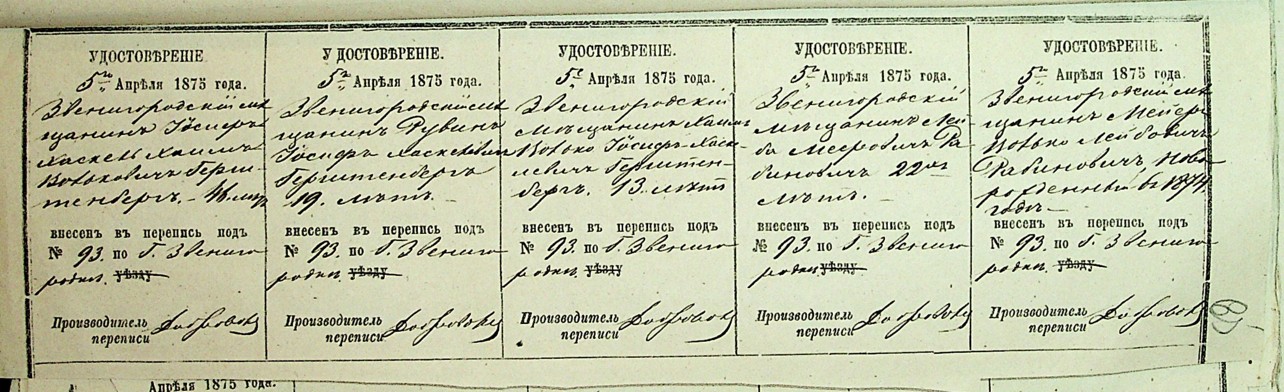 УДОСТОВѢРЕНІЕ
5го Апрѣля 1875 года.
Звенигородскій мѣ
щанинъ Іосифъ
Хаскель Хаимъ
Вовковичъ Герш-
тенбергъ. – 46. лѣтъ
внесенъ въ перепись подъ
№ 93. по Г. Звениго
родки. уѣзду
Производитель
переписи
УДОСТОВѢРЕНІЕ.
5го Апрѣля 1875 года.
Звенигородскій мѣ
щанинъ Рувинъ
Іосифъ Хаскелевичъ
Герштенбергъ
19. лѣтъ.
внесенъ въ перепись подъ
№ 93. по Г. Звениго
родки. уѣзду
Производитель
переписи
УДОСТОВѢРЕНІЕ.
5го Апрѣля 1875 года.
Звенигородскій
мѣщанинъ Хаимъ
Вовко Іосифъ-Хаске-
левичъ Герштен-
бергъ. 13. лѣтъ
внесенъ въ перепись подъ
№ 93. по Г. Звениго
родки. уѣзду
Производитель
переписи
УДОСТОВѢРЕНІЕ.
5го Апрѣля 1875 года.
Звенигородскій
мѣщанинъ Лей-
ба Мееровичъ Ра
биновичъ 22хъ
лѣтъ.
внесенъ въ перепись подъ
№ 93. по Г. Звениго
родки уѣзду
Производитель
переписи
УДОСТОВѢРЕНІЕ.
5го Апрѣля 1875 года.
Звенигородскій мѣ
щанинъ Мейеръ
Вовко Лейбовичъ
Рабиновичъ ново
рожденный въ 1874.
годѣ
внесенъ въ перепись подъ
№ 93. по Г. Звениго
родки. уѣзду
Производитель
переписи
Апрѣля 1875 года.